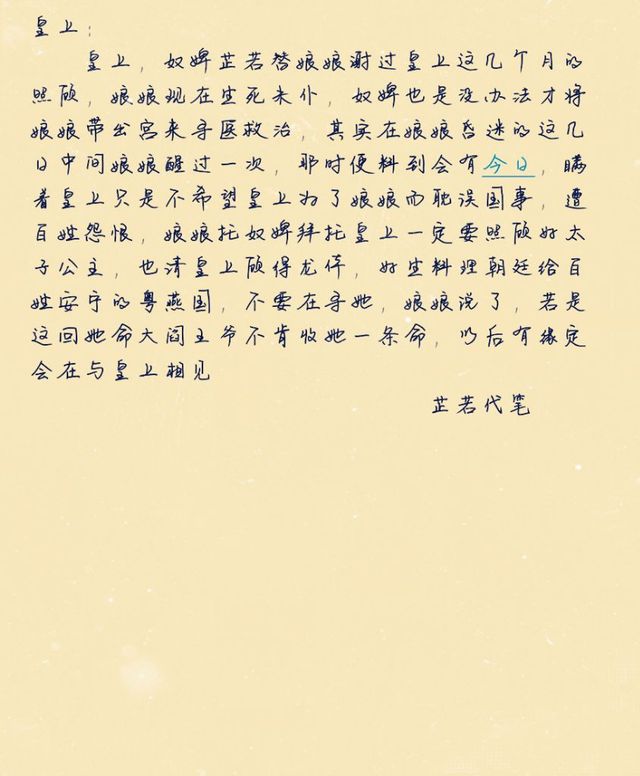 皇上：
皇上，奴婢芷若替娘娘谢过皇上这几个月的
照顾，娘娘现在生死未仆，奴婢也是没办法才将
娘娘带出宫来寻医救治，其实在娘娘昏迷的这几
日中间娘娘醒过一次，那时便料到会有今日，瞒
着皇上只是不希望皇上为了娘娘而耽误国事，遭
百姓怨恨，娘娘托奴婢拜托皇上一定要照顾好太
子公主，也清皇上顾得龙体，好生料理朝廷给百
姓安宁的粤燕国，不要在寻她，娘娘说了，若是
这回她命大阎王爷不肯收她一条命，以后有缘定
会在与皇上相见
芷若代笔